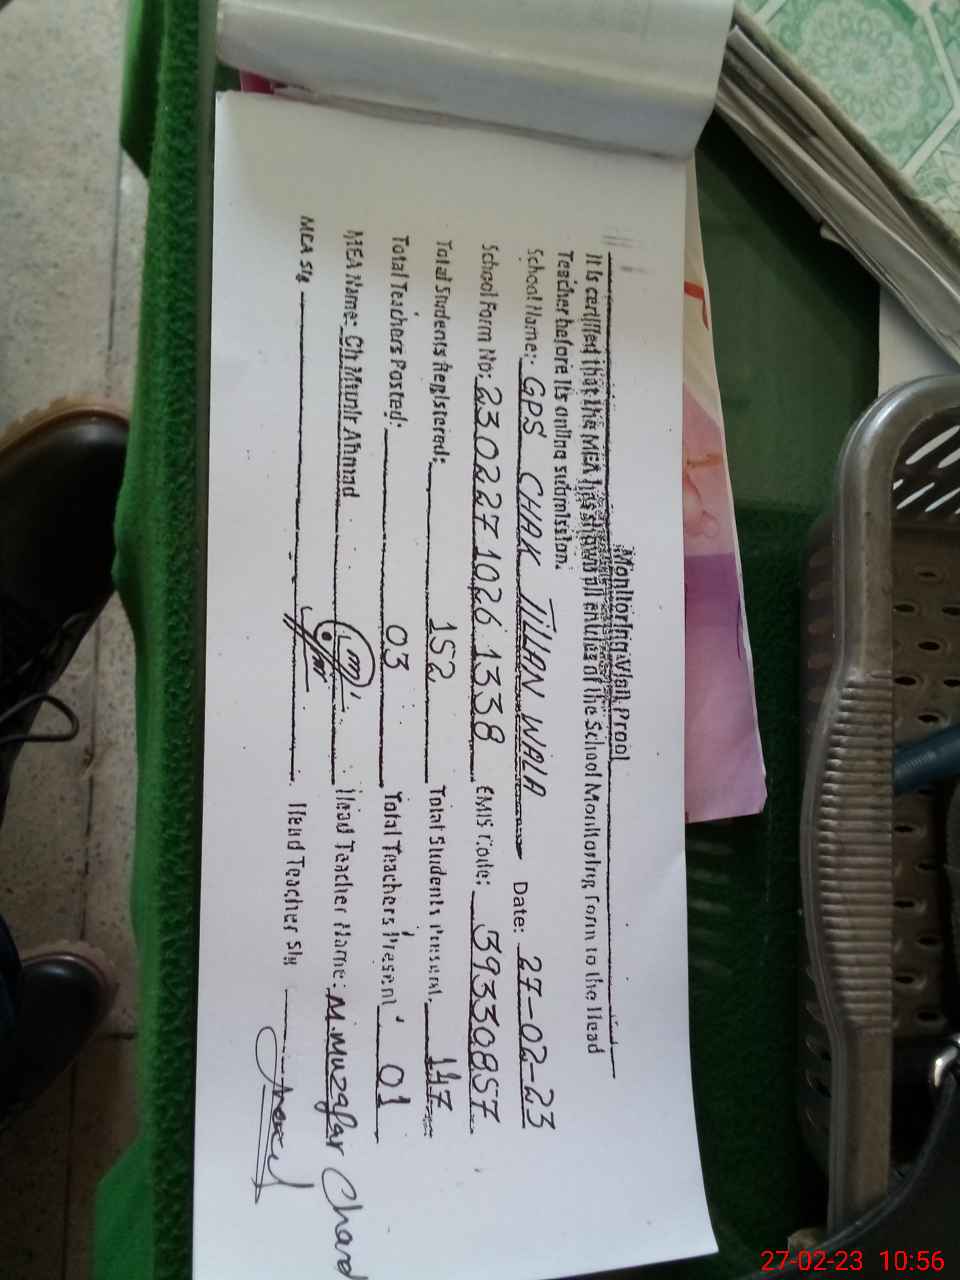 Monitoring Visit Proof
It is certified that the MEA has shown all entries of the School Monitoring Form to the Head
Teacher before its online submission.
School Name:- GPS CHAK TILLAN WALA Date: 27-02-23
School Form No: 23022710261338 EMIS Code: 39330857
Total Students Registered: 152 Total Students Present. 147
Total Teachers Posted: 03 Total Teachers Present 01
MEA Name: Ch Munir Ahmad Head Teacher Name: M. Muzaffar Chand
MEA Sig Head Teacher Sig
27-02-23 10:56